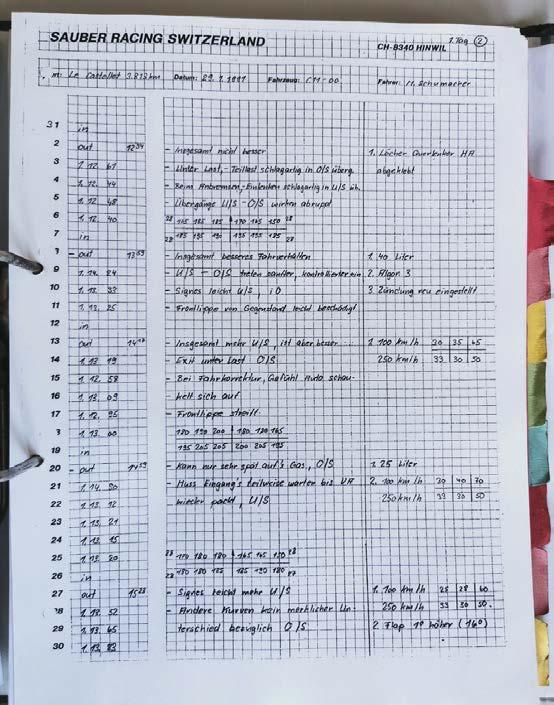 SAUBER RACING SWITZERLAND
CH-8340 HINWIL
1. Tag 2
m: Le Castellet 3.813 km Datum: 29.1.1991 Fahrzeug: C11-00 Fahrer: M. Schumacher
31 in
2 out 1234 - Insgesamt nicht besser 1. Löcher Querlenker HA
3 1.12.61 - Unter Last,-Teillast schlagartig in O/S überg. abgeklebt
4 1.12.44 - Beim Anbremsen,-Einlenken schlagartig in U/S üb.
5 1.12.48 - Übergänge U/S - O/S wirken abrupt
6 1.12.40 28 165 185 185 170 165 150 28
7 in 28 185 195 190 195 195 185 28
out 1359 - Insgesamt besseres Fahrverhalten 1. 40 Liter
9 1.14.24 - U/S - O/S treten sanfter, kontrollierter ein 2. Algon 3
10 1.12.93 - Signes leicht U/S, iO 3. Zündung neu eingestellt
11 1.13.25 - Frontlippe von Gegenstand leicht beschädigt
12 in
13 out - Insgesamt mehr U/S, ist aber besser 1. 100 km/h 30 35 65
14 1.13.19 - Exit unter Last O/S 250 km/h 33 30 50
15 1.12.58 - Bei Fahrkorrektur, Gefühl Auto schau-
16 1.13.09 kelt sich auf
17 1.12.95 - Frontlippe streift
1.13.00 180 190 200 180 180 165
19 in 195 205 205 200 205 195
20 - out - Kann nur sehr spät auf's Gas, O/S 1. 25 Liter
21 1.14.50 - Muss Eingang's teilweise warten bis VA 2. 100 km/h 30 40 70
22 1.13.12 wieder packt, U/S 250 km/h 33 30 50
23 1.13.21
24 1.13.15
25 1.13.20 28 170 180 180 165 165 150 28
26 in 28 180 180 185 185 190 180 27
27 out 1528 - Signes leicht mehr U/S 1. 100 km/h 28 28 60
28 1.13.52 - Andere Kurven kein merklicher Un- 250 km/h 33 30 50.
29 1.13.65 terschied bezüglich O/S 2. Flap 1° höher (16°)
30 1.13.83